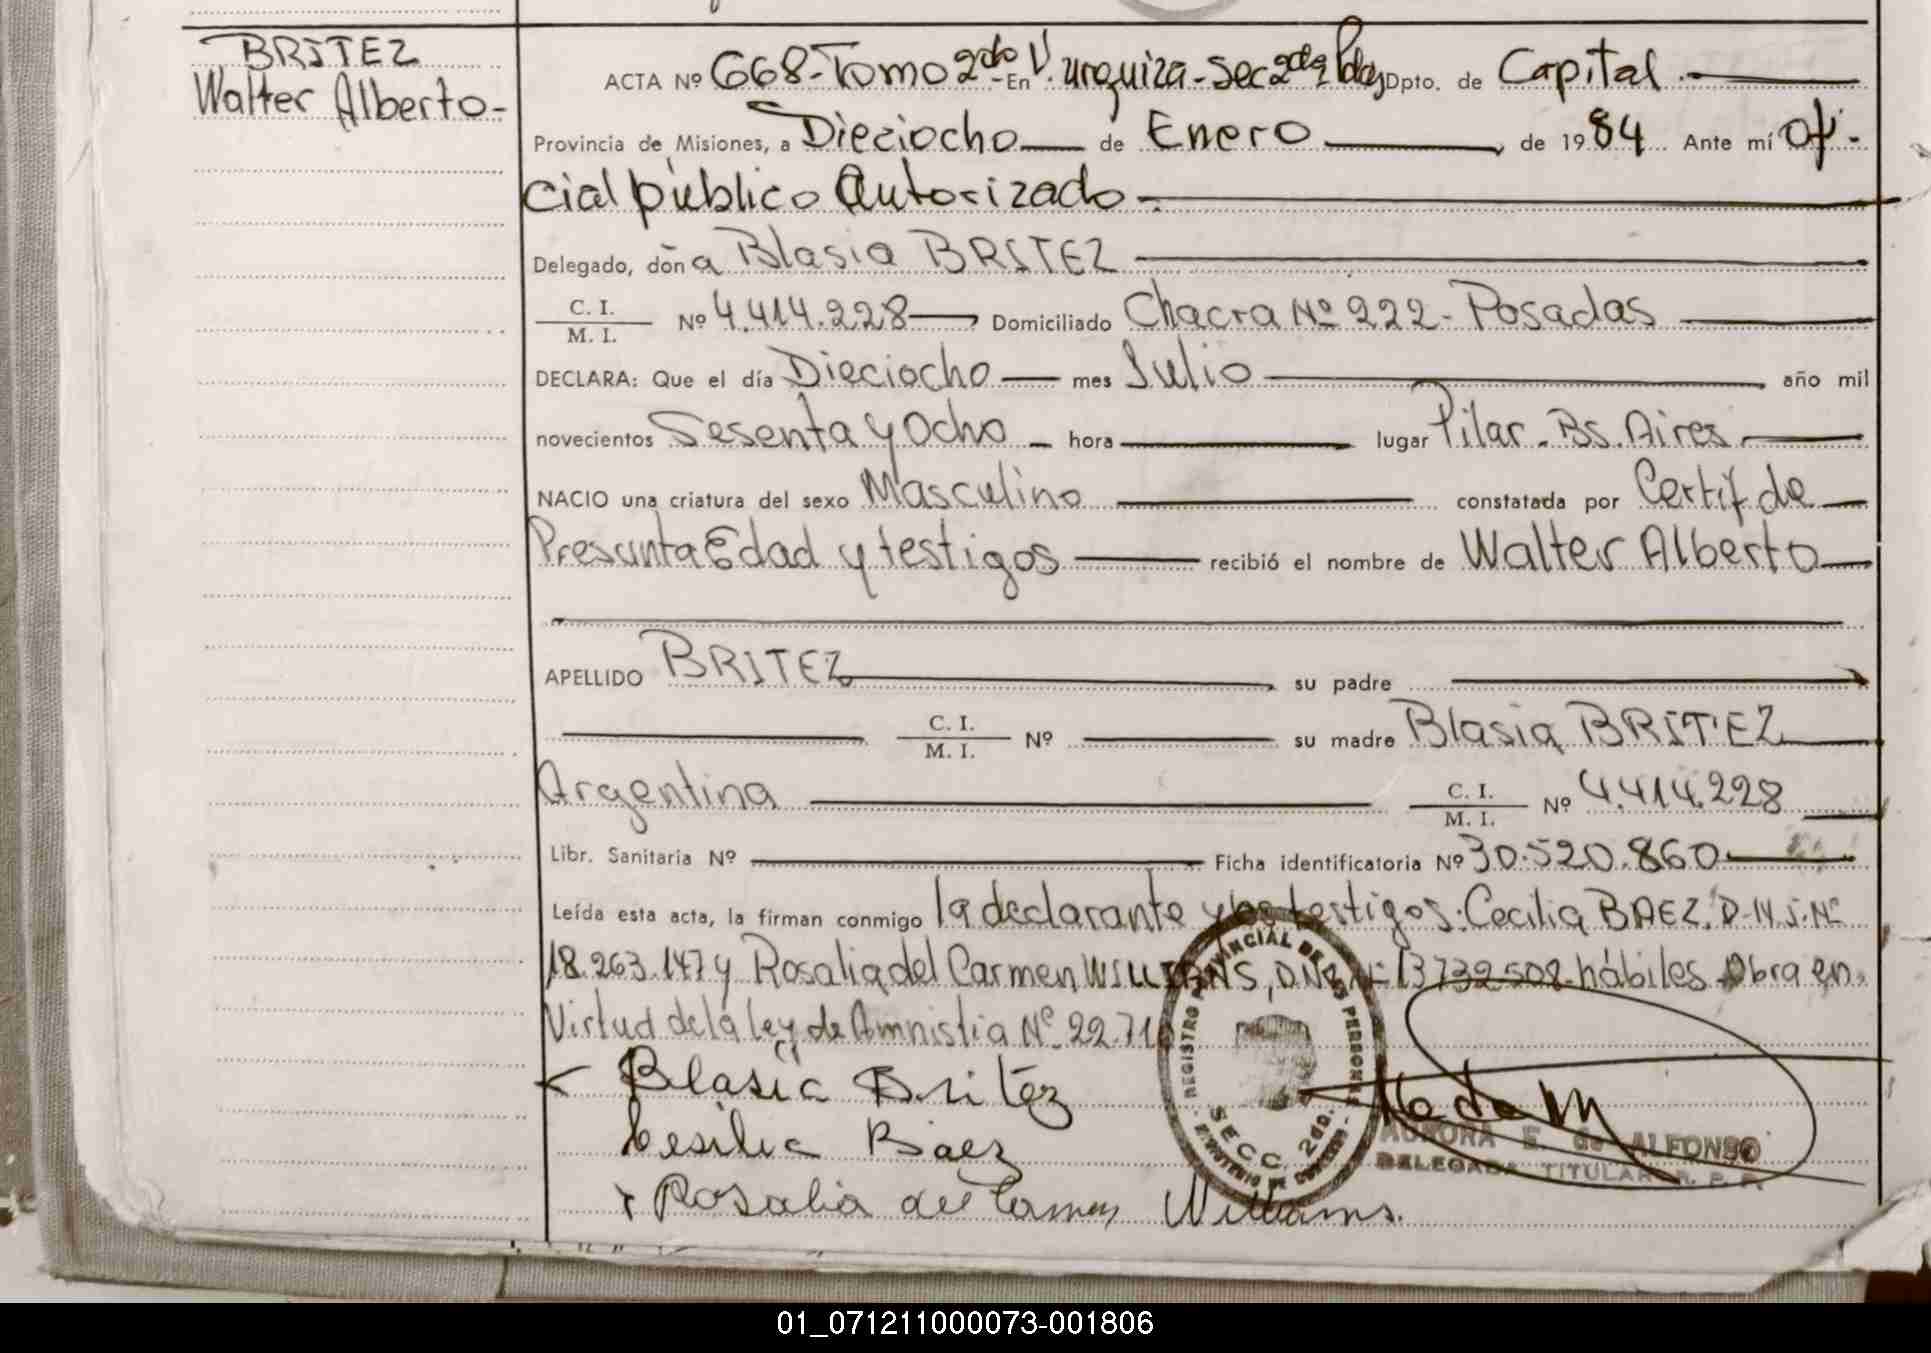 BRITEZ
Walter Alberto-
ACTA Nº 668-Tomo 2do-En V. Urquiza-Sec 2da Pdas Dpto. de Capital.
Provincia de Misiones, a Dieciocho de Enero, de 1984 Ante mí Ofi-
cial público Autorizado
Delegado, doña Blasia BRITEZ
C. I.
M. I. Nº 4.414.228 Domiciliado Chacra Nº 222-Posadas
DECLARA: Que el día Dieciocho mes Julio, año mil
novecientos Sesenta y Ocho hora lugar Pilar-Bs. Aires
NACIO una criatura del sexo Masculino constatada por Certif de
Presunta Edad y testigos recibió el nombre de Walter Alberto
APELLIDO BRITEZ su padre
C. I.
M. I. Nº su madre Blasia BRITEZ
Argentina C. I.
M. I. Nº 4.414.228
Libr. Sanitaria Nº Ficha identificatoria Nº 30.520.860
Leída esta acta, la firman conmigo la declarante y los testigos: Cecilia BAEZ, D.N.I. Nº
18.263.147 y Rosalia del Carmen WILLIANS, D.N.I. 13732508 hábiles. Obra en
Virtud de la ley de Amnistia Nº 22.71
Blasia Britez
Cesilia Baez
Rosalia del Carmen Williams.
REGISTRO PROVINCIAL DE LAS PERSONAS
SECC. 2da.
MINISTERIO DE GOBIERNO
AURORA E. de ALFONSO
DELEGADA TITULAR R. P. P.
01_071211000073-001806